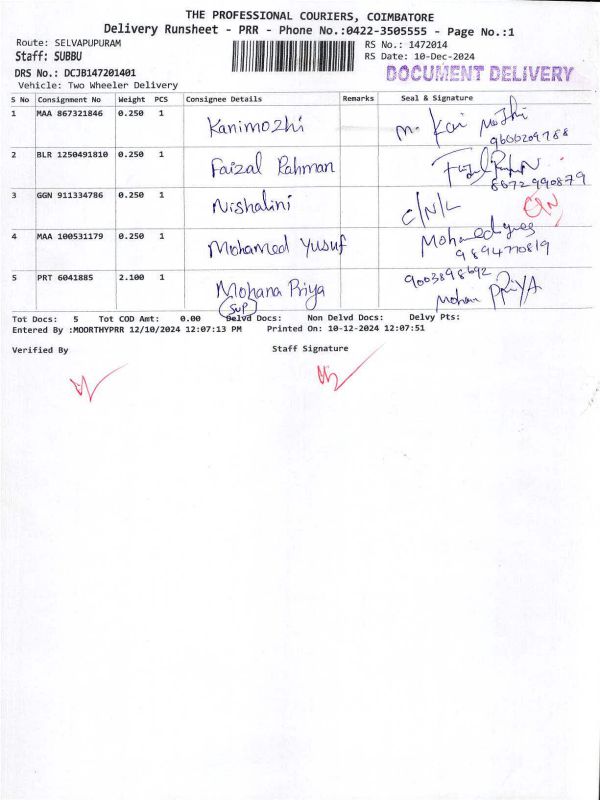 THE PROFESSIONAL COURIERS, COIMBATORE
Delivery Runsheet - PRR - Phone No.:0422-3505555 - Page No.:1
Route: SELVAPUPURAM RS No.: 1472014
Staff: SUBBU RS Date: 10-Dec-2024
DRS No.: DCJB147201401 DOCUMENT DELIVERY
Vehicle: Two Wheeler Delivery
S No Consignment No Weight PCS Consignee Details Remarks Seal & Signature
1 MAA 867321846 0.250 1 Kanimozhi
9600209788
2 BLR 1250491810 0.250 1 Faizal Rahman
8072990879
3 GGN 911334786 0.250 1 Nishalini C/N/L
4 MAA 100531179 0.250 1 Mohamed Yusuf
9894770819
5 PRT 6041885 2.100 1 Mohana Priya 9003898692
(SUP) Mohan PRIYA
Tot Docs: 5 Tot COD Amt: 0.00 Delvd Docs: Non Delvd Docs: Delvy Pts:
Entered By :MOORTHYPRR 12/10/2024 12:07:13 PM Printed On: 10-12-2024 12:07:51
Verified By Staff Signature